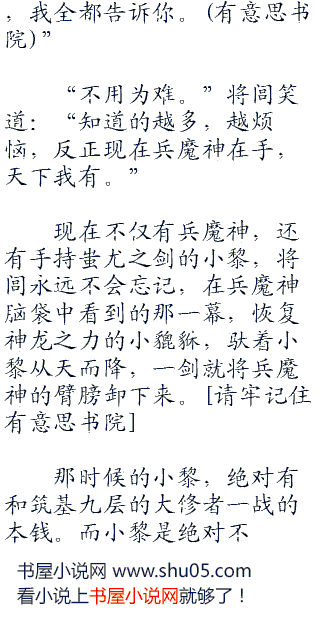 ，我全都告诉你。(有意思书
院)”
“不用为难。”将闾笑
道：“知道的越多，越烦
恼，反正现在兵魔神在手，
天下我有。”
现在不仅有兵魔神，还
有手持蚩尤之剑的小黎，将
闾永远不会忘记，在兵魔神
脑袋中看到的那一幕，恢复
神龙之力的小貔貅，驮着小
黎从天而降，一剑就将兵魔
神的臂膀卸下来。[请牢记住
有意思书院]
那时候的小黎，绝对有
和筑基九层的大修者一战的
本钱。而小黎是绝对不
书屋小说网 www.shu05.com
看小说上书屋小说网就够了！